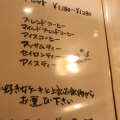 ¥1,180 ¥1,280
ブレンドコーヒー
マイルドブレンドコーヒー
アイスコーヒー
アッサムティー
セイロンティー
アイスティー
お好きなケーキと上記お飲物から
お選び下さい